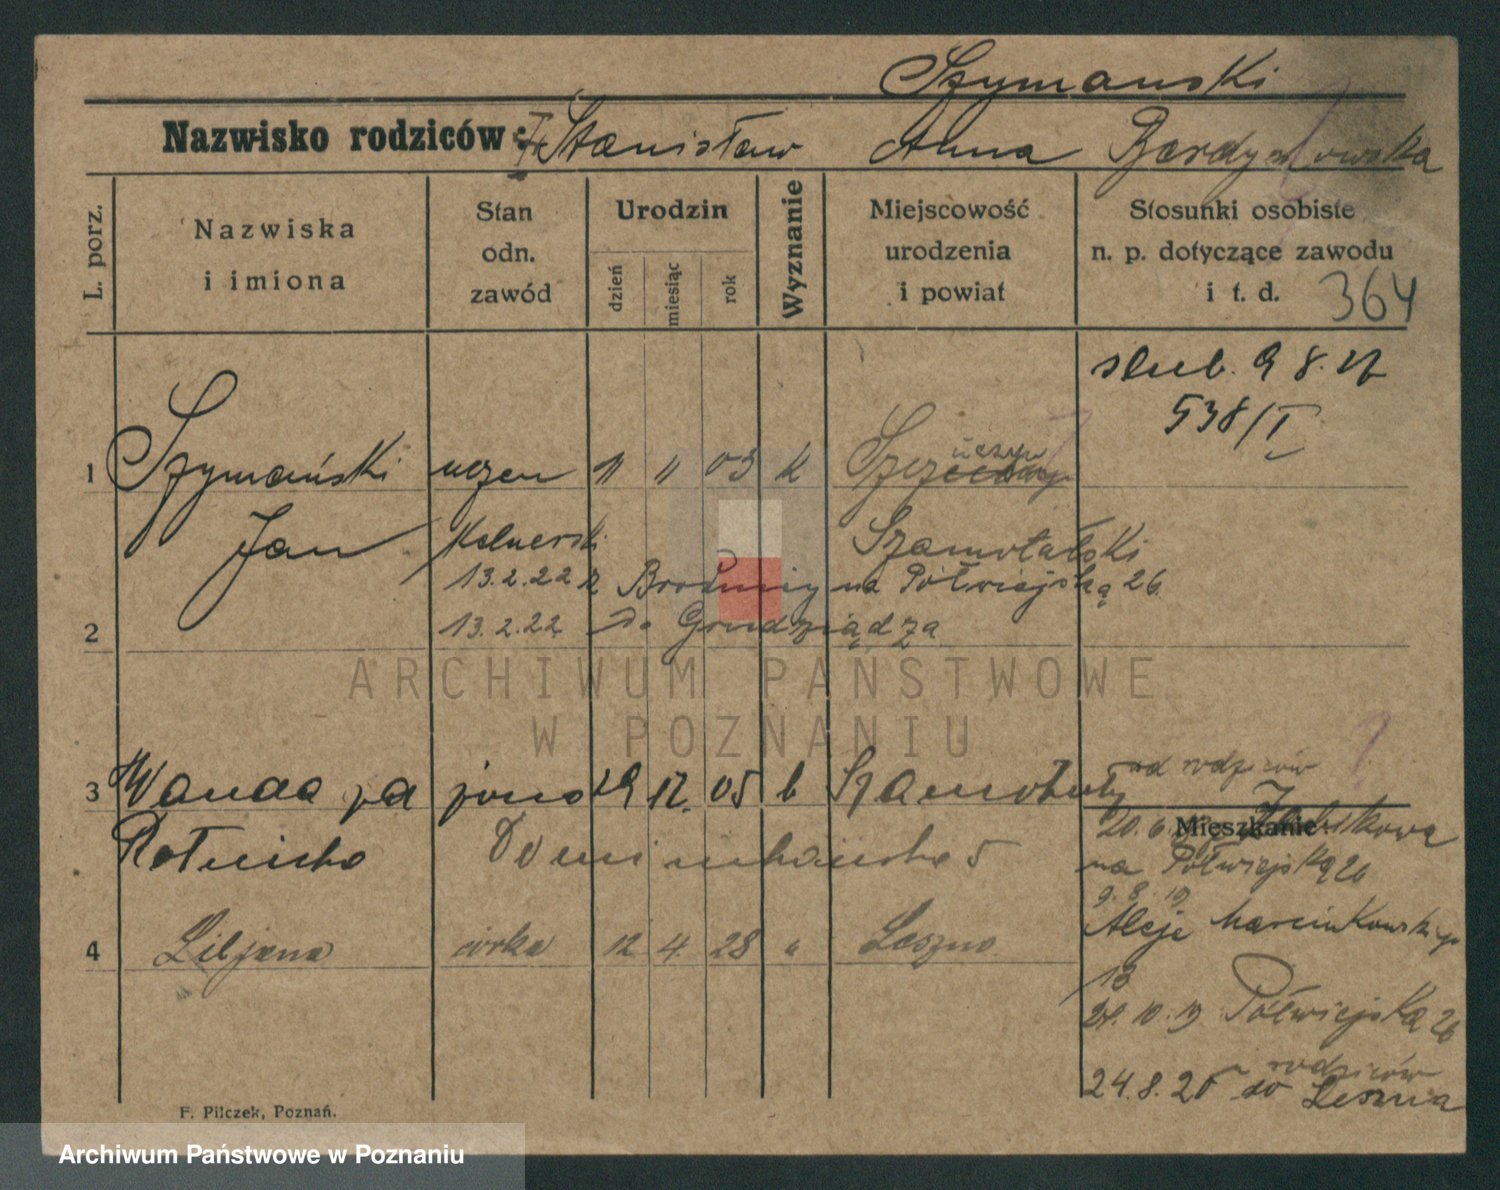 Szymanski
Nazwisko rodziców: Stanisław Anna
L. porz.
Nazwiska i imiona
Stan odn. zawód
Urodzin
dzień
miesiąc
rok
Wyznanie
Miejscowość urodzenia i powiat
Stosunki osobiste n. p. dotyczące zawodu i t. d.
364
slub. 9 8. 27
538/I
1 Szymański uczen 11 11 03 k
Jan Kelnerski Szamotulski
13.2.22 z Brodnicy na Półwiejską 26
2 13.2.22 do Grudziądza
od rodziców
3 Wanda zd jono 29 12. 05 k Szamotuły
Mieszkanie
20.6
Ratnicka Dominikańska 5
na Półwiejską 26
9.8.19
Aleje Marcinkowskiego
4 Liljana córka 12 4. 28 " Leszno
13
24.10.19 Półwiejska 26
u rodziców
24.8.25 do Leszna
F. Pilczek, Poznań.
ARCHIWUM PAŃSTWOWE
W POZNANIU
Archiwum Państwowe w Poznaniu